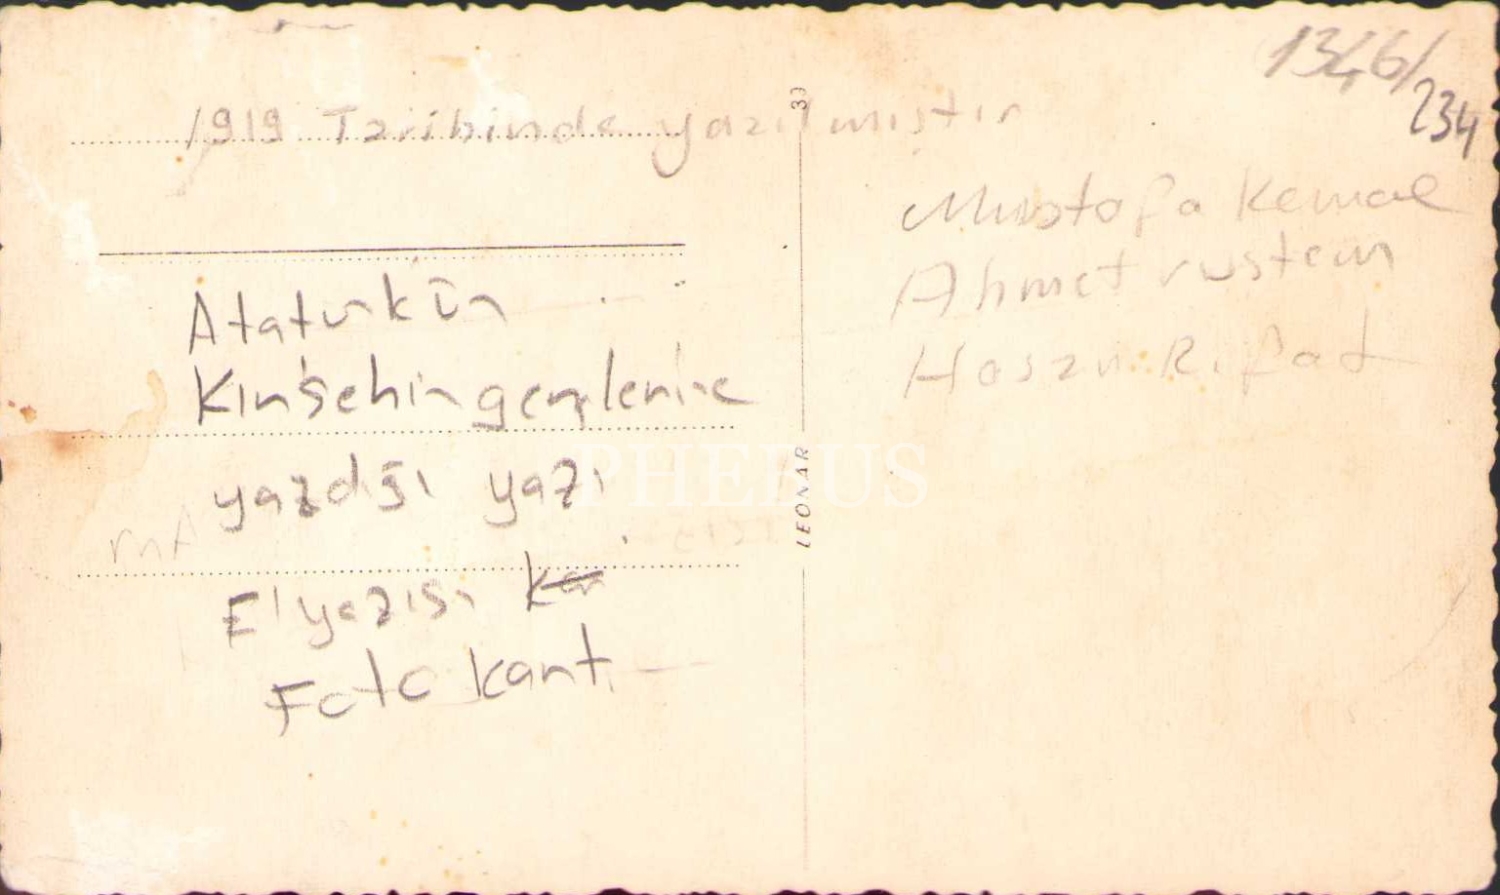 1346/
234
1919 Tarihinde yazılmıştır
Mustafa Kemal
Ahmet rustem
Hasan Rifat
Atatürkün
Kırşehir gençlerine
yazdığı yazı
El yazısı
Foto kant
LEONAR
39
PHEBUS